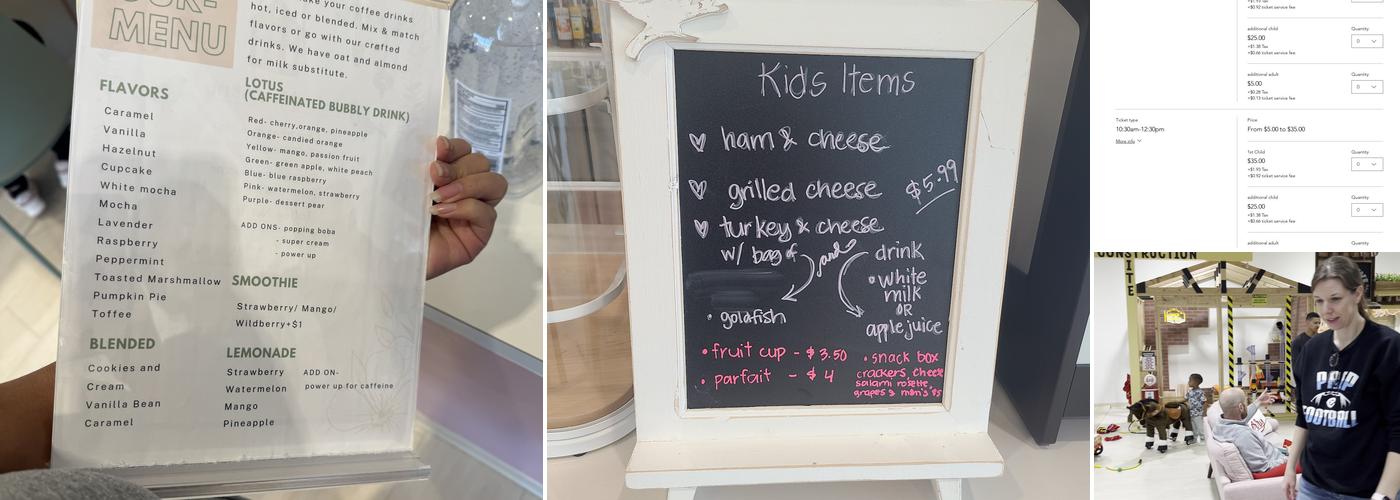 MENU
make your coffee drinks
hot, iced or blended. Mix & match
flavors or go with our crafted
drinks. We have oat and almond
for milk substitute.
FLAVORS
Caramel
Vanilla
Hazelnut
Cupcake
White mocha
Mocha
Lavender
Raspberry
Peppermint
Toasted Marshmallow
Pumpkin Pie
Toffee
BLENDED
Cookies and
Cream
Vanilla Bean
Caramel
LOTUS
(CAFFEINATED BUBBLY DRINK)
Red- cherry,orange, pineapple
Orange- candied orange
Yellow- mango, passion fruit
Green- green apple, white peach
Blue- blue raspberry
Pink- watermelon, strawberry
Purple- dessert pear
ADD ONS- popping boba
- super cream
- power up
SMOOTHIE
Strawberry/ Mango/
Wildberry+$1
LEMONADE
Strawberry
Watermelon
Mango
Pineapple
ADD ON-
power up for caffeine
Kids Items
ham & cheese
grilled cheese
$5.99
turkey & cheese
w/ bag of
and
drink
• white
milk
OR
apple juice
• goldfish
• fruit cup - $3.50
• parfait - $4
• snack box
crackers, cheese
salami rosette,
grapes &
+$0.92 ticket service fee
additional child
$25.00
+$1.38 Tax
+$0.66 ticket service fee
Quantity
0
additional adult
$5.00
+$0.28 Tax
+$0.13 ticket service fee
Quantity
0
Ticket type
10:30am-12:30pm
More info
Price
From $5.00 to $35.00
1st Child
$35.00
+$1.93 Tax
+$0.92 ticket service fee
Quantity
0
additional child
$25.00
+$1.38 Tax
+$0.66 ticket service fee
Quantity
0
additional adult
Quantity
CONSTRUCTION
SITE
PREP
FOOTBALL